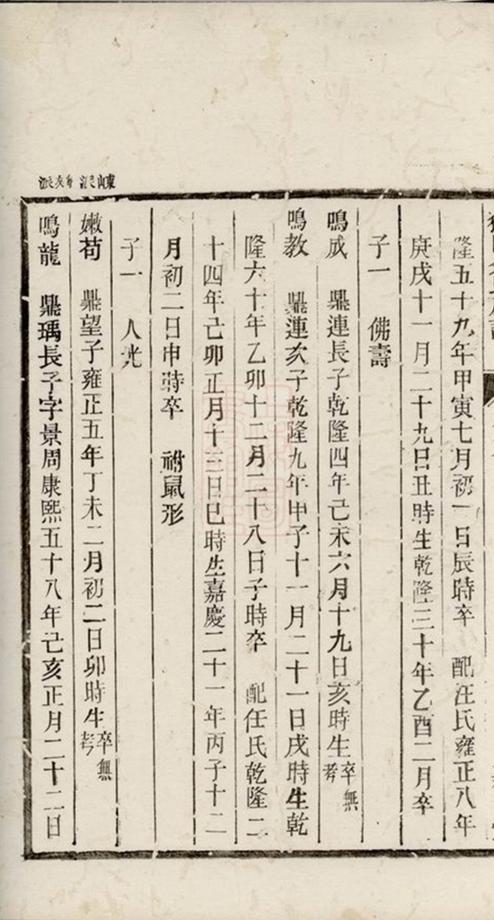 隆五十九年甲寅七月初一日辰時卒　配汪氏雍正八年
庚戌十一月二十九日丑時生乾隆三十年乙酉二月卒
子一　佛壽
鳴成　鼎連長子乾隆四年己未六月十九日亥時生卒無考
鳴教　鼎連次子乾隆九年甲子十一月二十一日戌時生乾
隆六十年乙卯十二月二十八日子時卒　配任氏乾隆二
十四年己卯正月十三日巳時生嘉慶二十一年丙子十二
月初二日申時卒　祔鼠形
子一　人光
嫩苟　鼎望子雍正五年丁未二月初二日卯時生卒無考
鳴龍　鼎瑀長子字景周康熙五十八年己亥正月二十二日